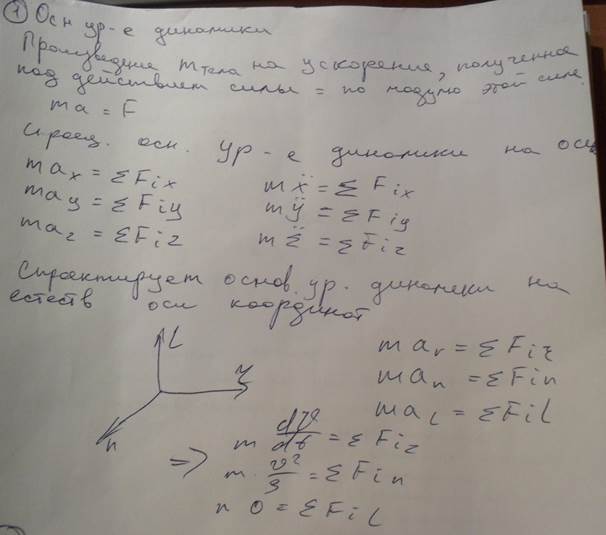 ① Осн ур-е динамики
Произведение m тела на ускорение, полученное
под действием силы = по модулю этой силе.
ma = F
Спроец. осн. ур-е динамики на оси
max = ΣFix   mẍ = ΣFix
may = ΣFiy   mÿ = ΣFiy
maz = ΣFiz   mz̈ = ΣFiz
Спроектирует основ. ур. динамики на
естеств оси координат
l
τ
n
maτ = ΣFiτ
man = ΣFin
mal = ΣFil
=> m dϑ/dt = ΣFiτ
m · ϑ²/ρ = ΣFin
0 = ΣFil